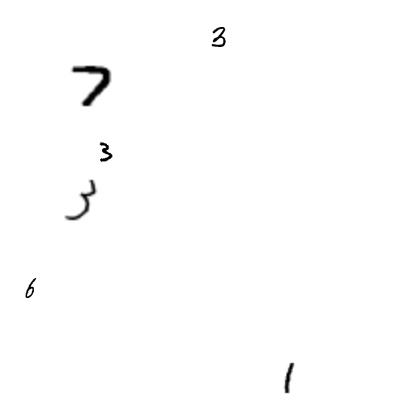 3
7
3
3
6
1